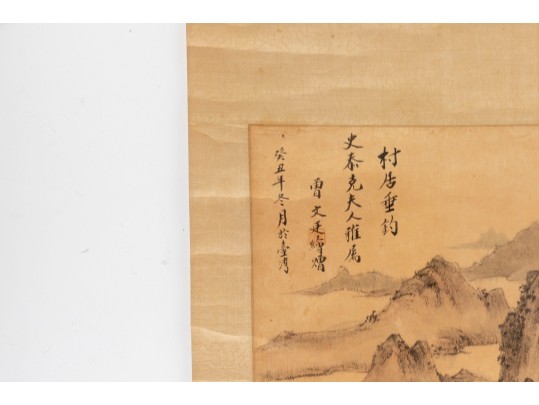 村居垂釣
史泰克夫人雅屬
曾文廷繪贈
癸丑年冬月於臺灣